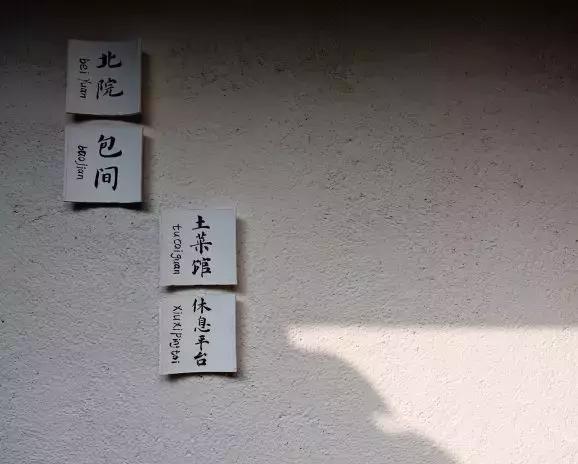 北院
bei yuan
包间
baojian
土菜馆
tucaiguan
休息平台
xiuxipingtai